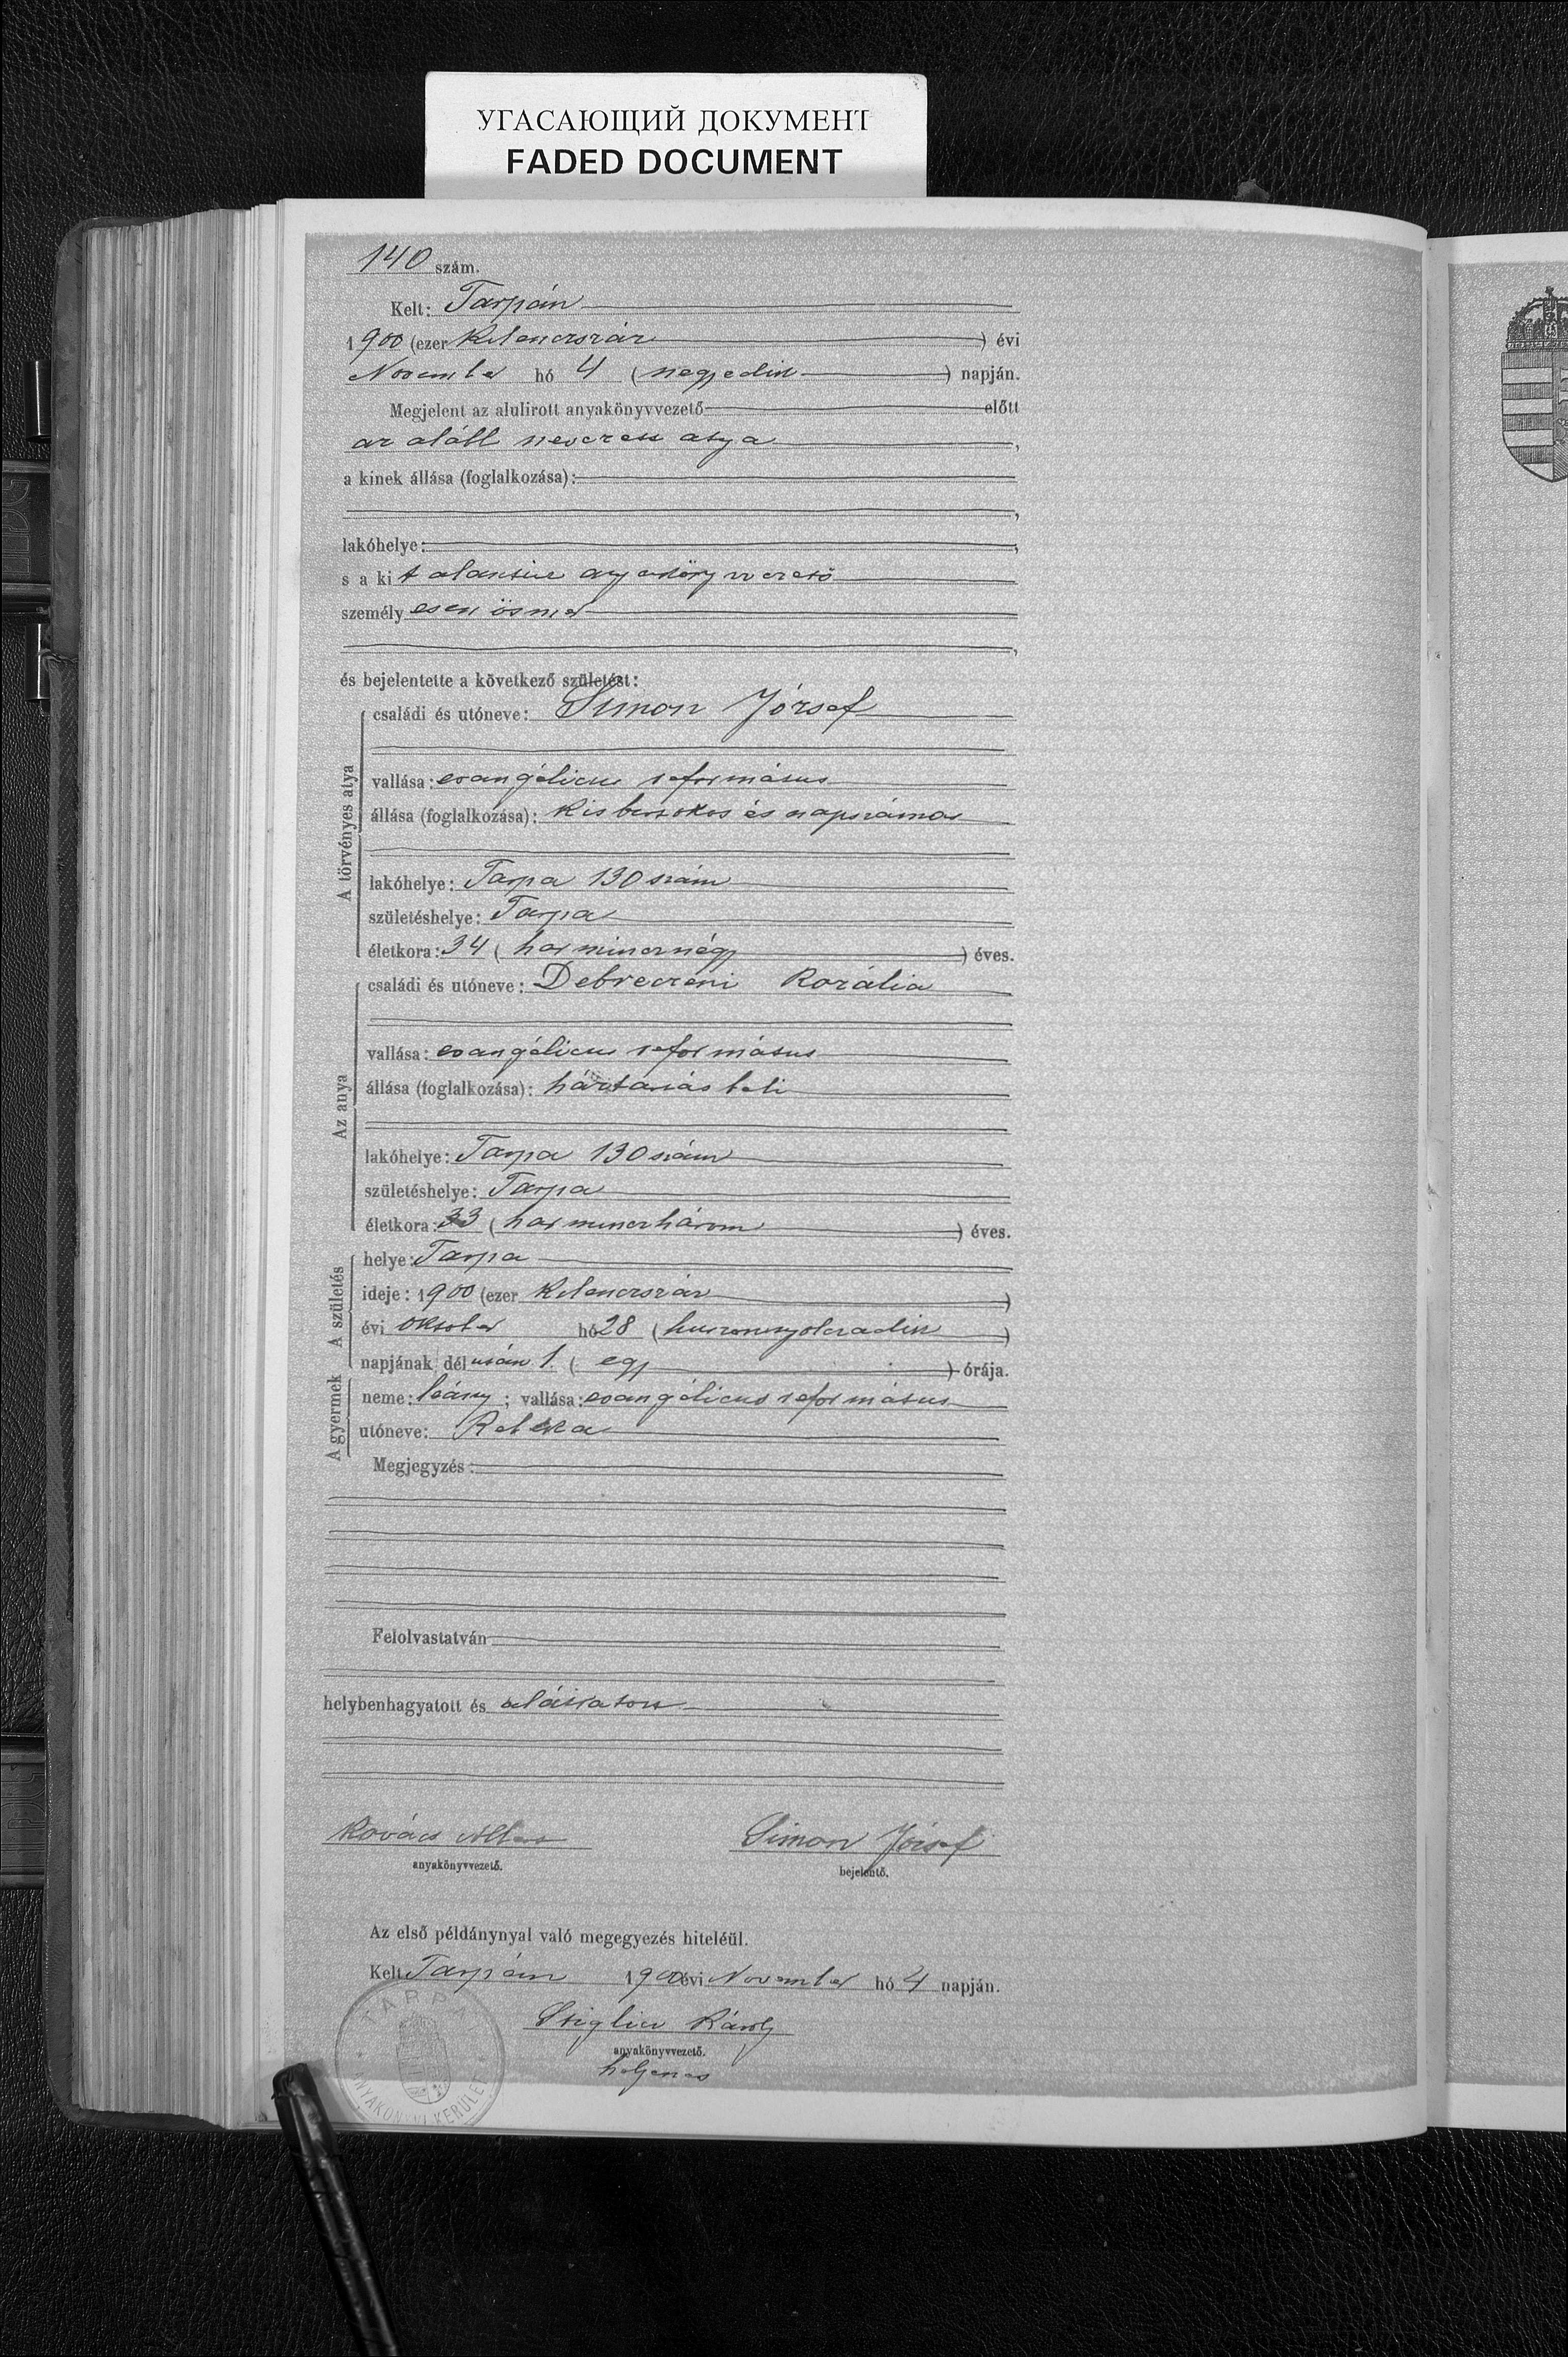 УГАСАЮЩИЙ ДОКУМЕНТ
FADED DOCUMENT
140 szám.
Kelt: Tarpán
1900 (ezer kilenczszáz) évi
November hó 4 (negyedik) napján.
Megjelent az alulirott anyakönyvvezető előtt
az alább nevezett atya,
a kinek állása (foglalkozása):
lakóhelye:
s a kit alantirt anyakönyvvezető
személyesen ösmer
és bejelentette a következő születést:
A törvényes atya
családi és utóneve: Simon József
vallása: evangélicus református
állása (foglalkozása): kisbirtokos és napszámos
lakóhelye: Tarpa 130 szám
születéshelye: Tarpa
életkora: 34 (harmincznégy) éves.
Az anya
családi és utóneve: Debreczeni Rozália
vallása: evangélicus református
állása (foglalkozása): háztartásbeli
lakóhelye: Tarpa 130 szám
születéshelye: Tarpa
életkora: 33 (harminczhárom) éves.
A születés
helye: Tarpa
ideje: 1900 (ezer kilenczszáz)
évi október hó 28 (huszonnyolczadik)
napjának délután 1 (egy) órája.
A gyermek
neme: leány; vallása: evangélicus református
utóneve: Rebeka
Megjegyzés:
Felolvastatván
helybenhagyatott és aláiratott
Kovács Albert Simon József
anyakönyvvezető. bejelentő.
Az első példánynyal való megegyezés hiteléül.
Kelt Tarpán 1900 évi November hó 4 napján.
Károly
anyakönyvvezető.
helyettes
TARPA
ANYAKÖNYVI KERÜLET